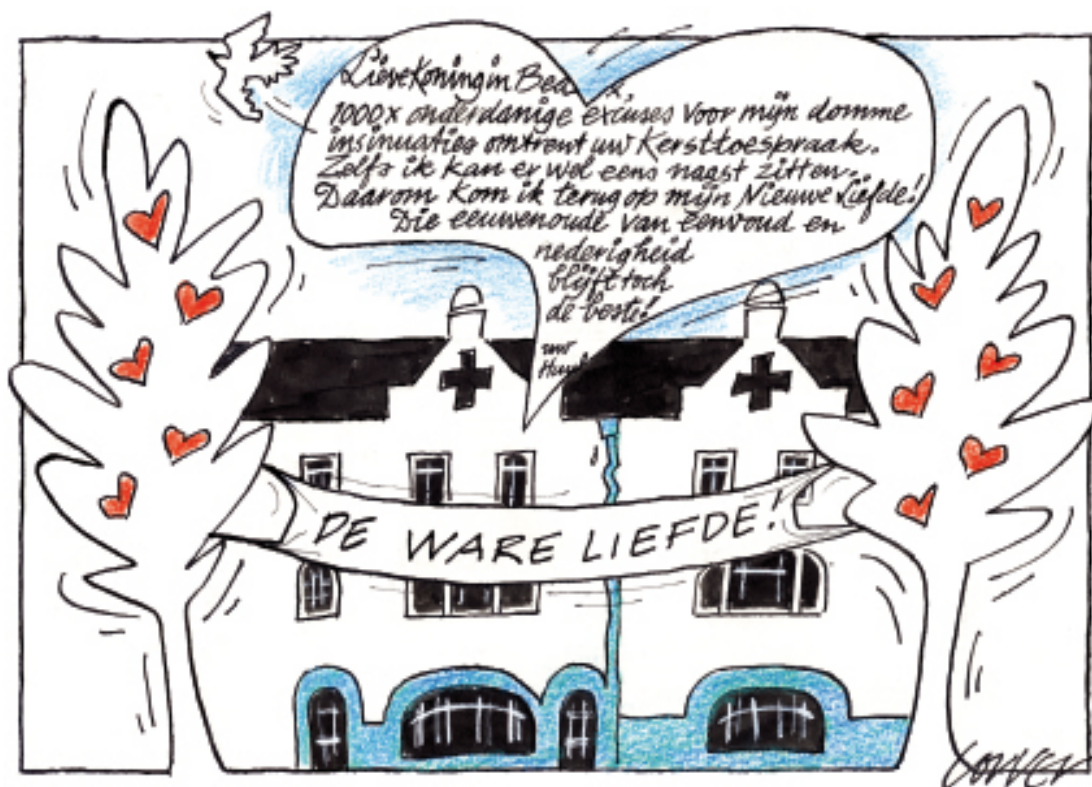 Lieve Koningin
1000x onderdanige excuses voor mijn domme
insinuaties omtrent uw Kersttoespraak.
Zelfs ik kan er wel eens naast zitten.
Daarom kom ik terug op mijn Nieuwe Liefde!
Die eeuwenoude van eenvoud en
nederigheid
blijft toch
de beste!
uw
DE WARE LIEFDE!